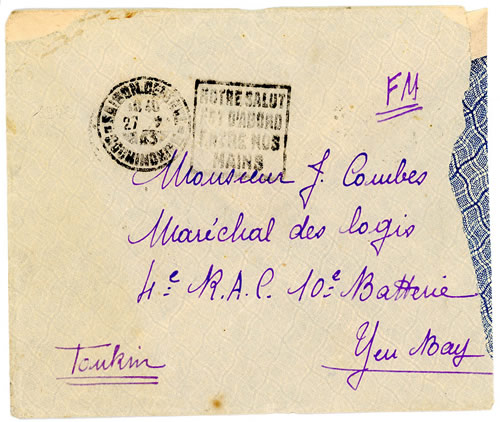 SAIGON CENTRAL
27
43
COCHINCHINE
NOTRE SALUT
EST D'ABORD
ENTRE NOS
MAINS
FM
Monsieur J. Combes
Maréchal des logis
4e R.A.C. 10e Batterie
Yen Bay
Tonkin